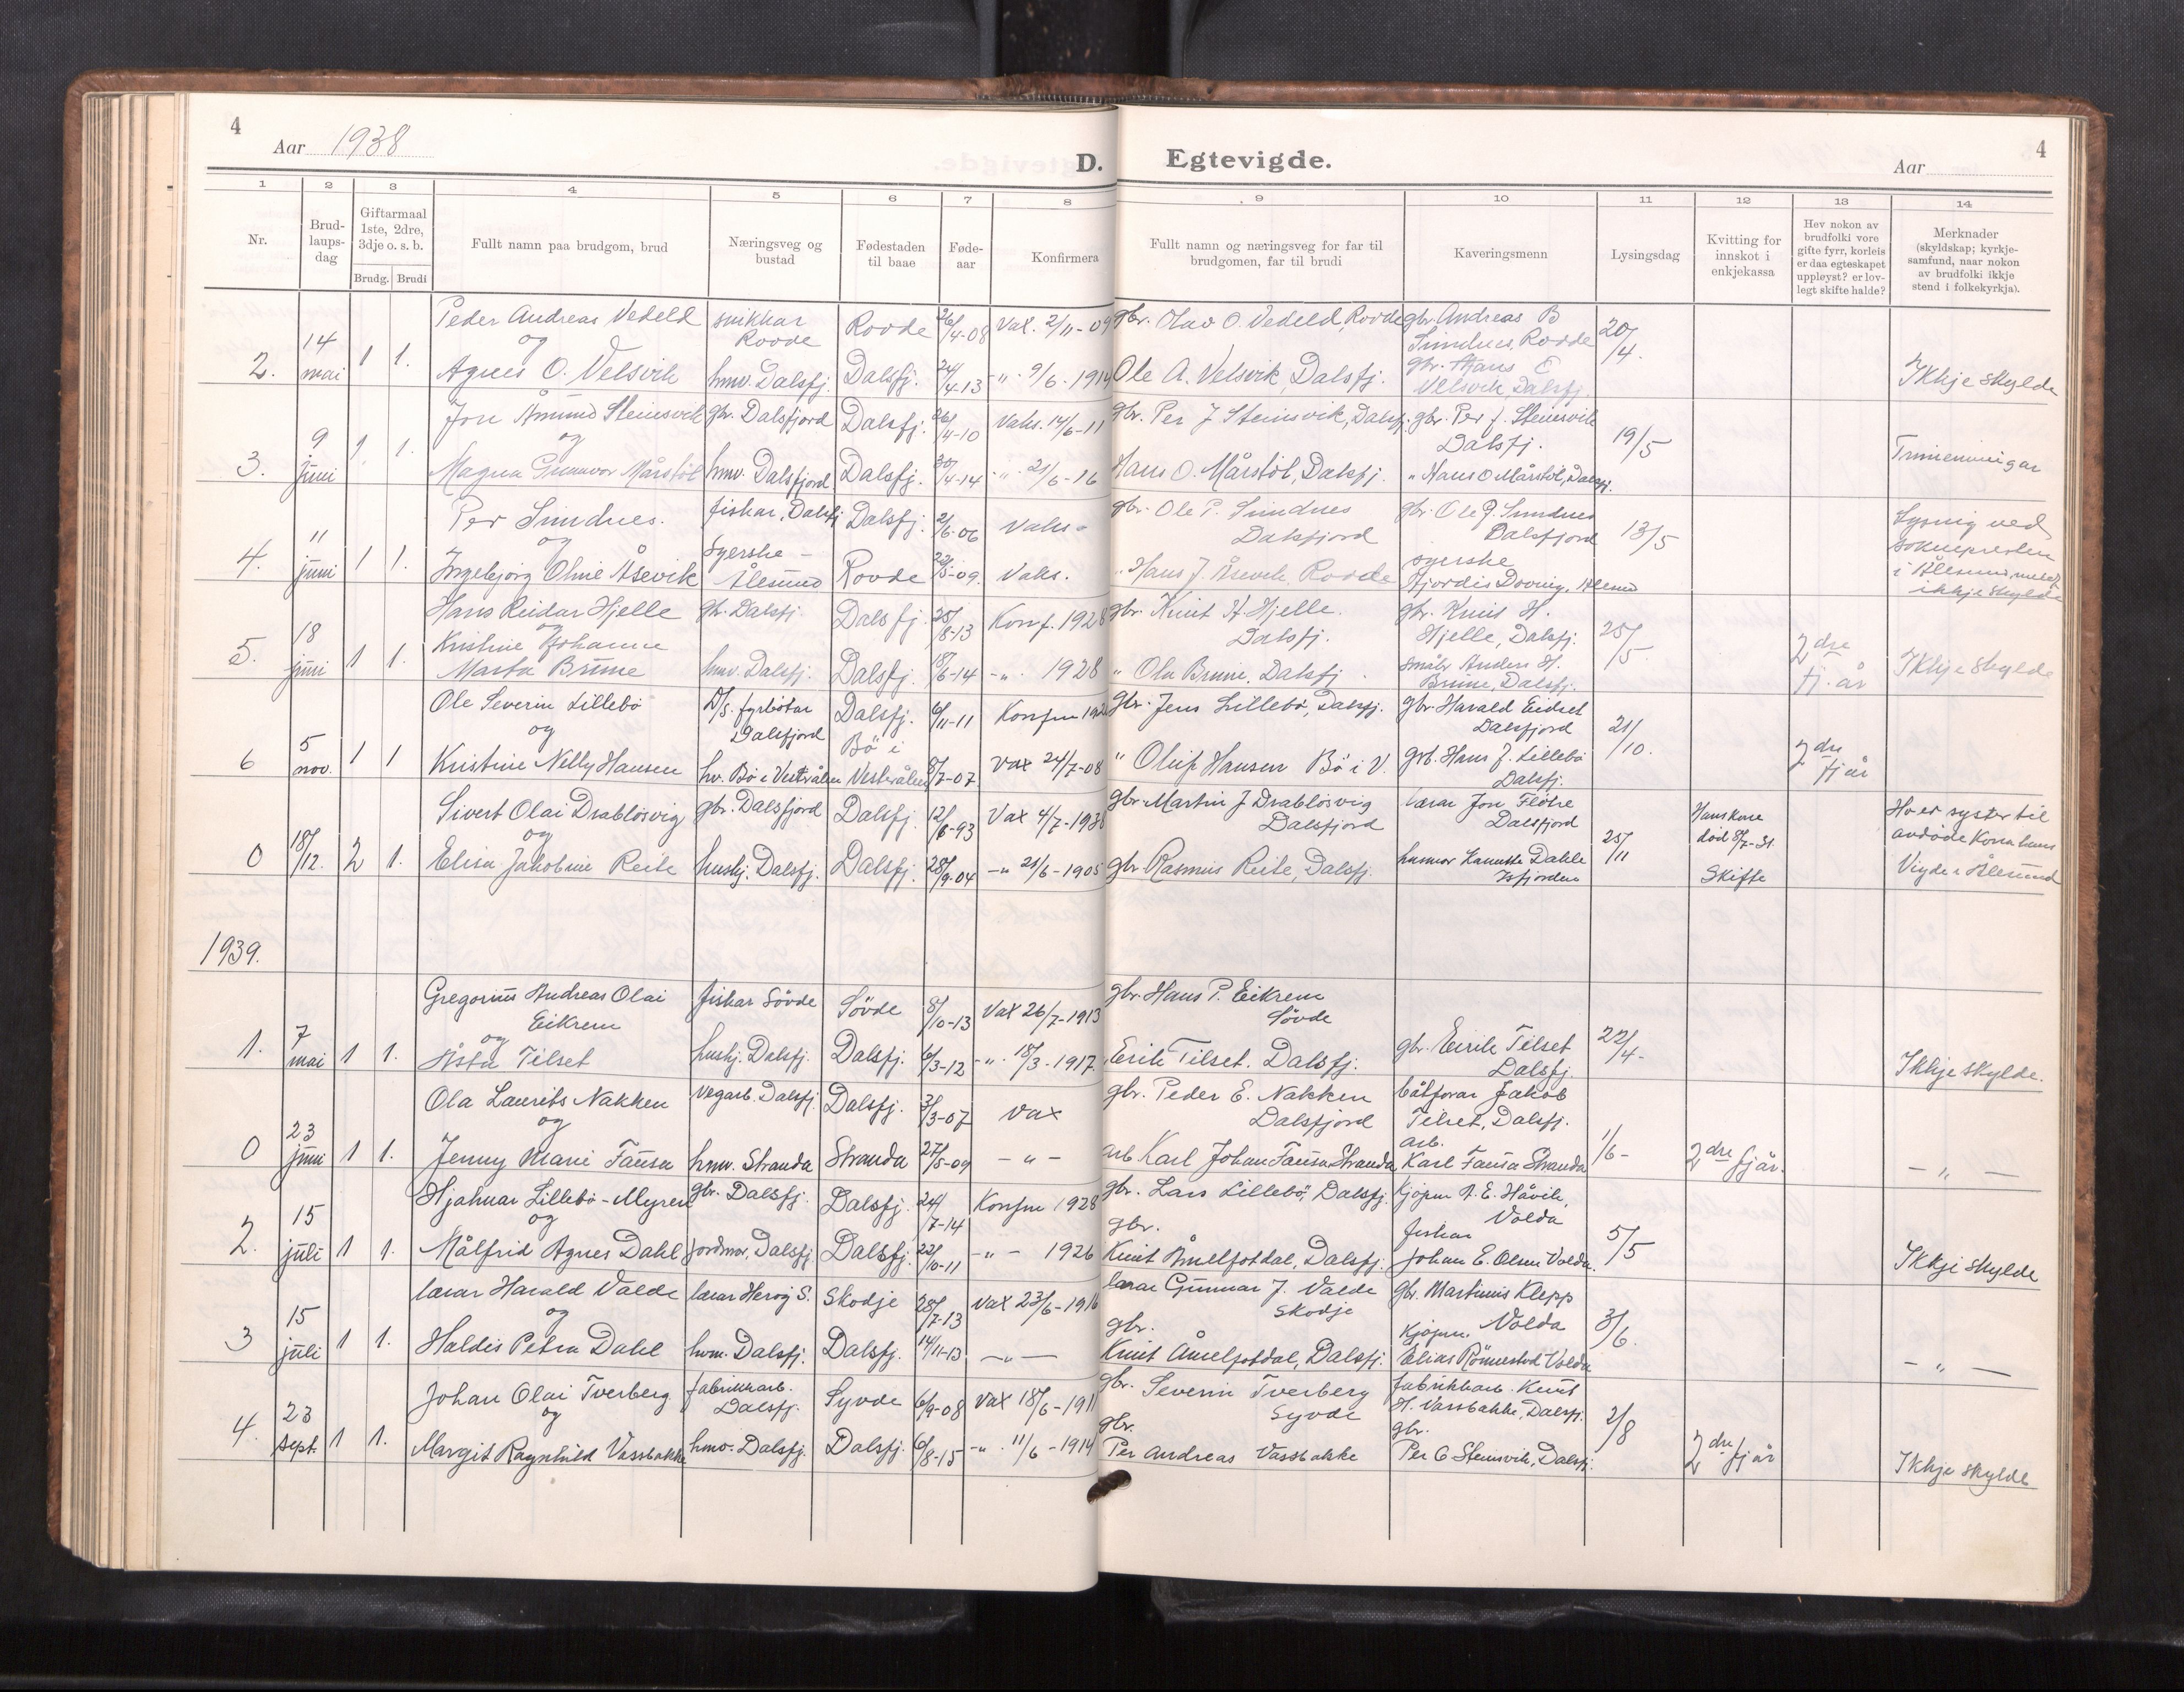 4
Aar 1938
D. Egtevigde.
Aar
4
1 2 3 4 5 6 7 8 9 10 11 12 13 14
Nr.
Brud-
laups-
dag
Giftarmaal
1ste, 2dre,
3dje o. s. b.
Brudg. Brudi
Fullt namn paa brudgom, brud
Næringsveg og
bustad
Fødestaden
til baae
Føde-
aar
Konfirmera
Fullt namn og næringsveg for far til
brudgomen, far til brudi
Kaveringsmenn
Lysingsdag
Kvitting for
innskot i
enkjekassa
Hev nokon av
brudfolki vore
gifte fyrr, korleis
er daa egteskapet
uppløyst? er lov-
legt skifte halde?
Merknader
(skyldskap; kyrkje-
samfund, naar nokon
av brudfolki ikkje
stend i folkekyrkja).
Peder Andreas Vedeld snikkar Rovde Rovde 26/4-08 Vax. 2/11-09 gbr. Olav O. Vedeld, Rovde gbr. Andreas B Simdnes, Rovde 20/4.
og
2. 14 mai 1 1. Agnes O. Velsvik hmv. Dalsfj. Dalsfj. 24/4-13 -"- 9/6-1914 Ole A. Velsvik, Dalsfj. gbr. Hans E Velsvik, Dalsfj. Ikkje skylde
Jon Åmund Steinsvik gbr. Dalsfjord Dalsfj. 26/4-10 Vaks. 14/6-11 gbr. Per J Steinsvik, Dalsfj. gbr. Per J. Steinsvik Dalsfj. 19/5
og
3. 9 juni 1 1. Magna Gunnvor Mårstöl hmv. Dalsfjord Dalsfj. 30/4-14 -"- 21/6-16 Hans O. Mårstöl, Dalsfj. " Hans O Mårstöl, Dalsfj. Trimenningar
Per Simdnes. fiskar, Dalsfj Dalsfj. 2/6-06 Vaks- gbr. Ole P. Simdnes Dalsfjord gbr. Ole P. Simdnes Dalsfjord 13/5
og
4. 11 juni 1 1. Ingebjörg Oline Åsevik Syerske - Ålesund Rovde 22/5-09. Vaks. " Hans J. Åsevik Rovde syerske Hjördis Ålesund
Lysing ved
soknepresten
i Ålesund
ikkje skylde
Hans Reidar Hjelle gbr. Dalsfj. Dalsfj. 25/8-13 Konf. 1928 gbr. Knut H. Hjelle. Dalsfj. gbr. Knut H. Hjelle, Dalsfj. 25/5
og
5. 18 juni 1 1. Kristine Johanne Marta Brune hmv. Dalsfj. Dalsfj. 18/6-14 -"- 1928 " Ola Brune, Dalsfj. småbr Anders H. Brune, Dalsfj. 2dre fj. år Ikkje skylde
Ole Severin Lillebö D/S. fyrbötar Dalsfjord Dalsfj. 6/11-11 Konfm gbr. Jens Lillebö, Dalsfj. gbr. Harald Eidset Dalsfjord 21/10.
og
6 5 nov. 1 1 Kristine Nelly Hansen hv. Bö i Vesterålen Bö i Vesterålen 8/7-07 Vax 24/7-08 " Oluf Hansen Bö i V. grb. Hans J. Lillebö Dalsfj. 2dre fj år
Sivert Olai Drablösvig gbr. Dalsfjord Dalsfj. 12/6-93 Vax 4/7-1938 gbr. Martin J Drablösvig Dalsfjord lærar Jon Flötre Dalsfjord 25/11
og
0 18/12. 2 1. Elisa Jakobine Reite hushj. Dalsfj. Dalsfj. 28/9-04 -"- 21/6-1905 gbr. Rasmus Reite, Dalsfj. husmor Dahle Isfjorden
Hans kone
död 8/7-31.
Skifte
Ho er syster til
avdöde kona hans
Vigde i Ålesund
1939.
Gregorius Andreas Olai Eikrem fiskar Sövde Sövde 8/10-13 Vax 26/7-1913 gbr. Hans P. Eikrem Sövde
og
1. 7 mai 1 1. Åsta Tilset hushj. Dalsfj. Dalsfj. 6/3-12 -"- 18/3-1917. Eirik Tilset. Dalsfj. gbr. Eirik Tilset Dalsfj. 22/4- Ikkje skylde.
Ola Laurits Nakken vegarb. Dalsfj. Dalsfj. 3/3-07 Vax gbr. Peder E. Nakken Dalsfjord båtförar Jakob Tilset, Dalsfj.
og
0 23 juni 1 1. Jenny Marie Fausa hmv. Stranda Stranda 27/5-09 -"- arb Karl Johan Fausa Stranda arb. Karl Fausa Stranda 1/6- 2dre fjår. -"-
Hjalmar Lillebö-Myren gbr. Dalsfj. Dalsfj. 24/7-14 Konfm 1928 gbr. Lars Lillebö, Dalsfj. Kjöpm A. E. Håvik, Volda
og
2. 15 juli 1 1. Målfrid Agnes Dahl jordmor, Dalsfj Dalsfj. 22/10-11 -"- 1926 gbr. Knut Åmelfotdal, Dalsfj. fiskar Johan E. Olsen Volda. 5/5 Ikkje skylde
lærar Harald Valde lærar Heröy S. Skodje 28/7-13 Vax 23/6-1916 lærar Gunnar J. Valde Skodje gbr. Martinus Klepp Volda
og
3 15 juli 1 1. Haldis Petra Dahl hvm. Dalsfj. Dalsfj. 14/11-13 -"- gbr. Knut Åmelfotdal, Dalsfj. Kjöpm. Elias Römestad Volda 3/6. -"-
Johan Olai Tverberg fabrikkarb. Dalsfj. Syvde 6/9-08 Vax 18/6-1911 gbr. Severin Tverberg Syvde fabrikkarb. Knut H. Vassbakke, Dalsfj. 2/8
og
4. 23 sept. 1 1. Margit Ragnhild Vassbakke hmv. Dalsfj. Dalsfj. 6/8-15 -"- 11/6-1914 gbr. Per Andreas Vassbakke gbr. Per O Steinsvik, Dalsfj. 2dre fjår Ikkje skylde